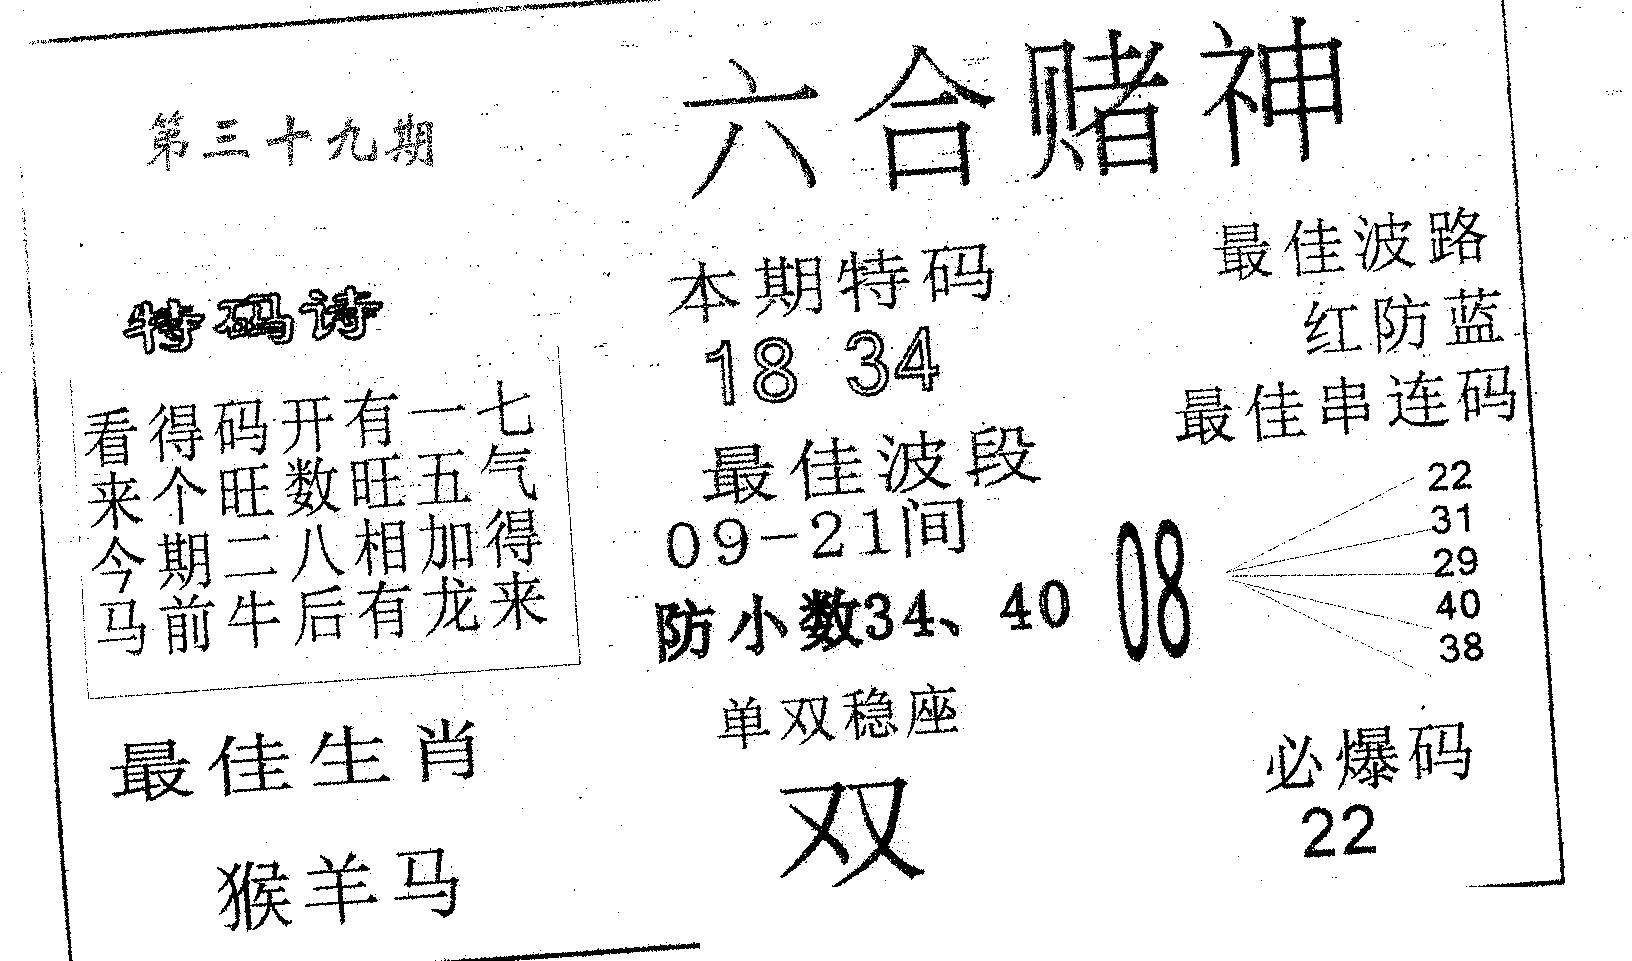 第三十九期
六合赌神
特码诗
看得码开有一七
来个旺数旺五气
今期二八相加得
马前牛后有龙来
最佳生肖
猴羊马
本期特码
18 34
最佳波段
09-21间
防小数34、40
单双稳座
双
最佳波路
红防蓝
最佳串连码
08
22
31
29
40
38
必爆码
22